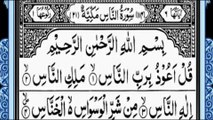 سُورَةُ النَّاسِ مَكِّيَّةٌ
بِسْمِ اللهِ الرَّحْمٰنِ الرَّحِيْمِ
قُلْ اَعُوْذُ بِرَبِّ النَّاسِ ۙ﴿۱﴾ مَلِكِ النَّاسِ ۙ﴿۲﴾
اِلٰهِ النَّاسِ ۙ﴿۳﴾ مِنْ شَرِّ الْوَسْوَاسِ ۙ الْخَنَّاسِ